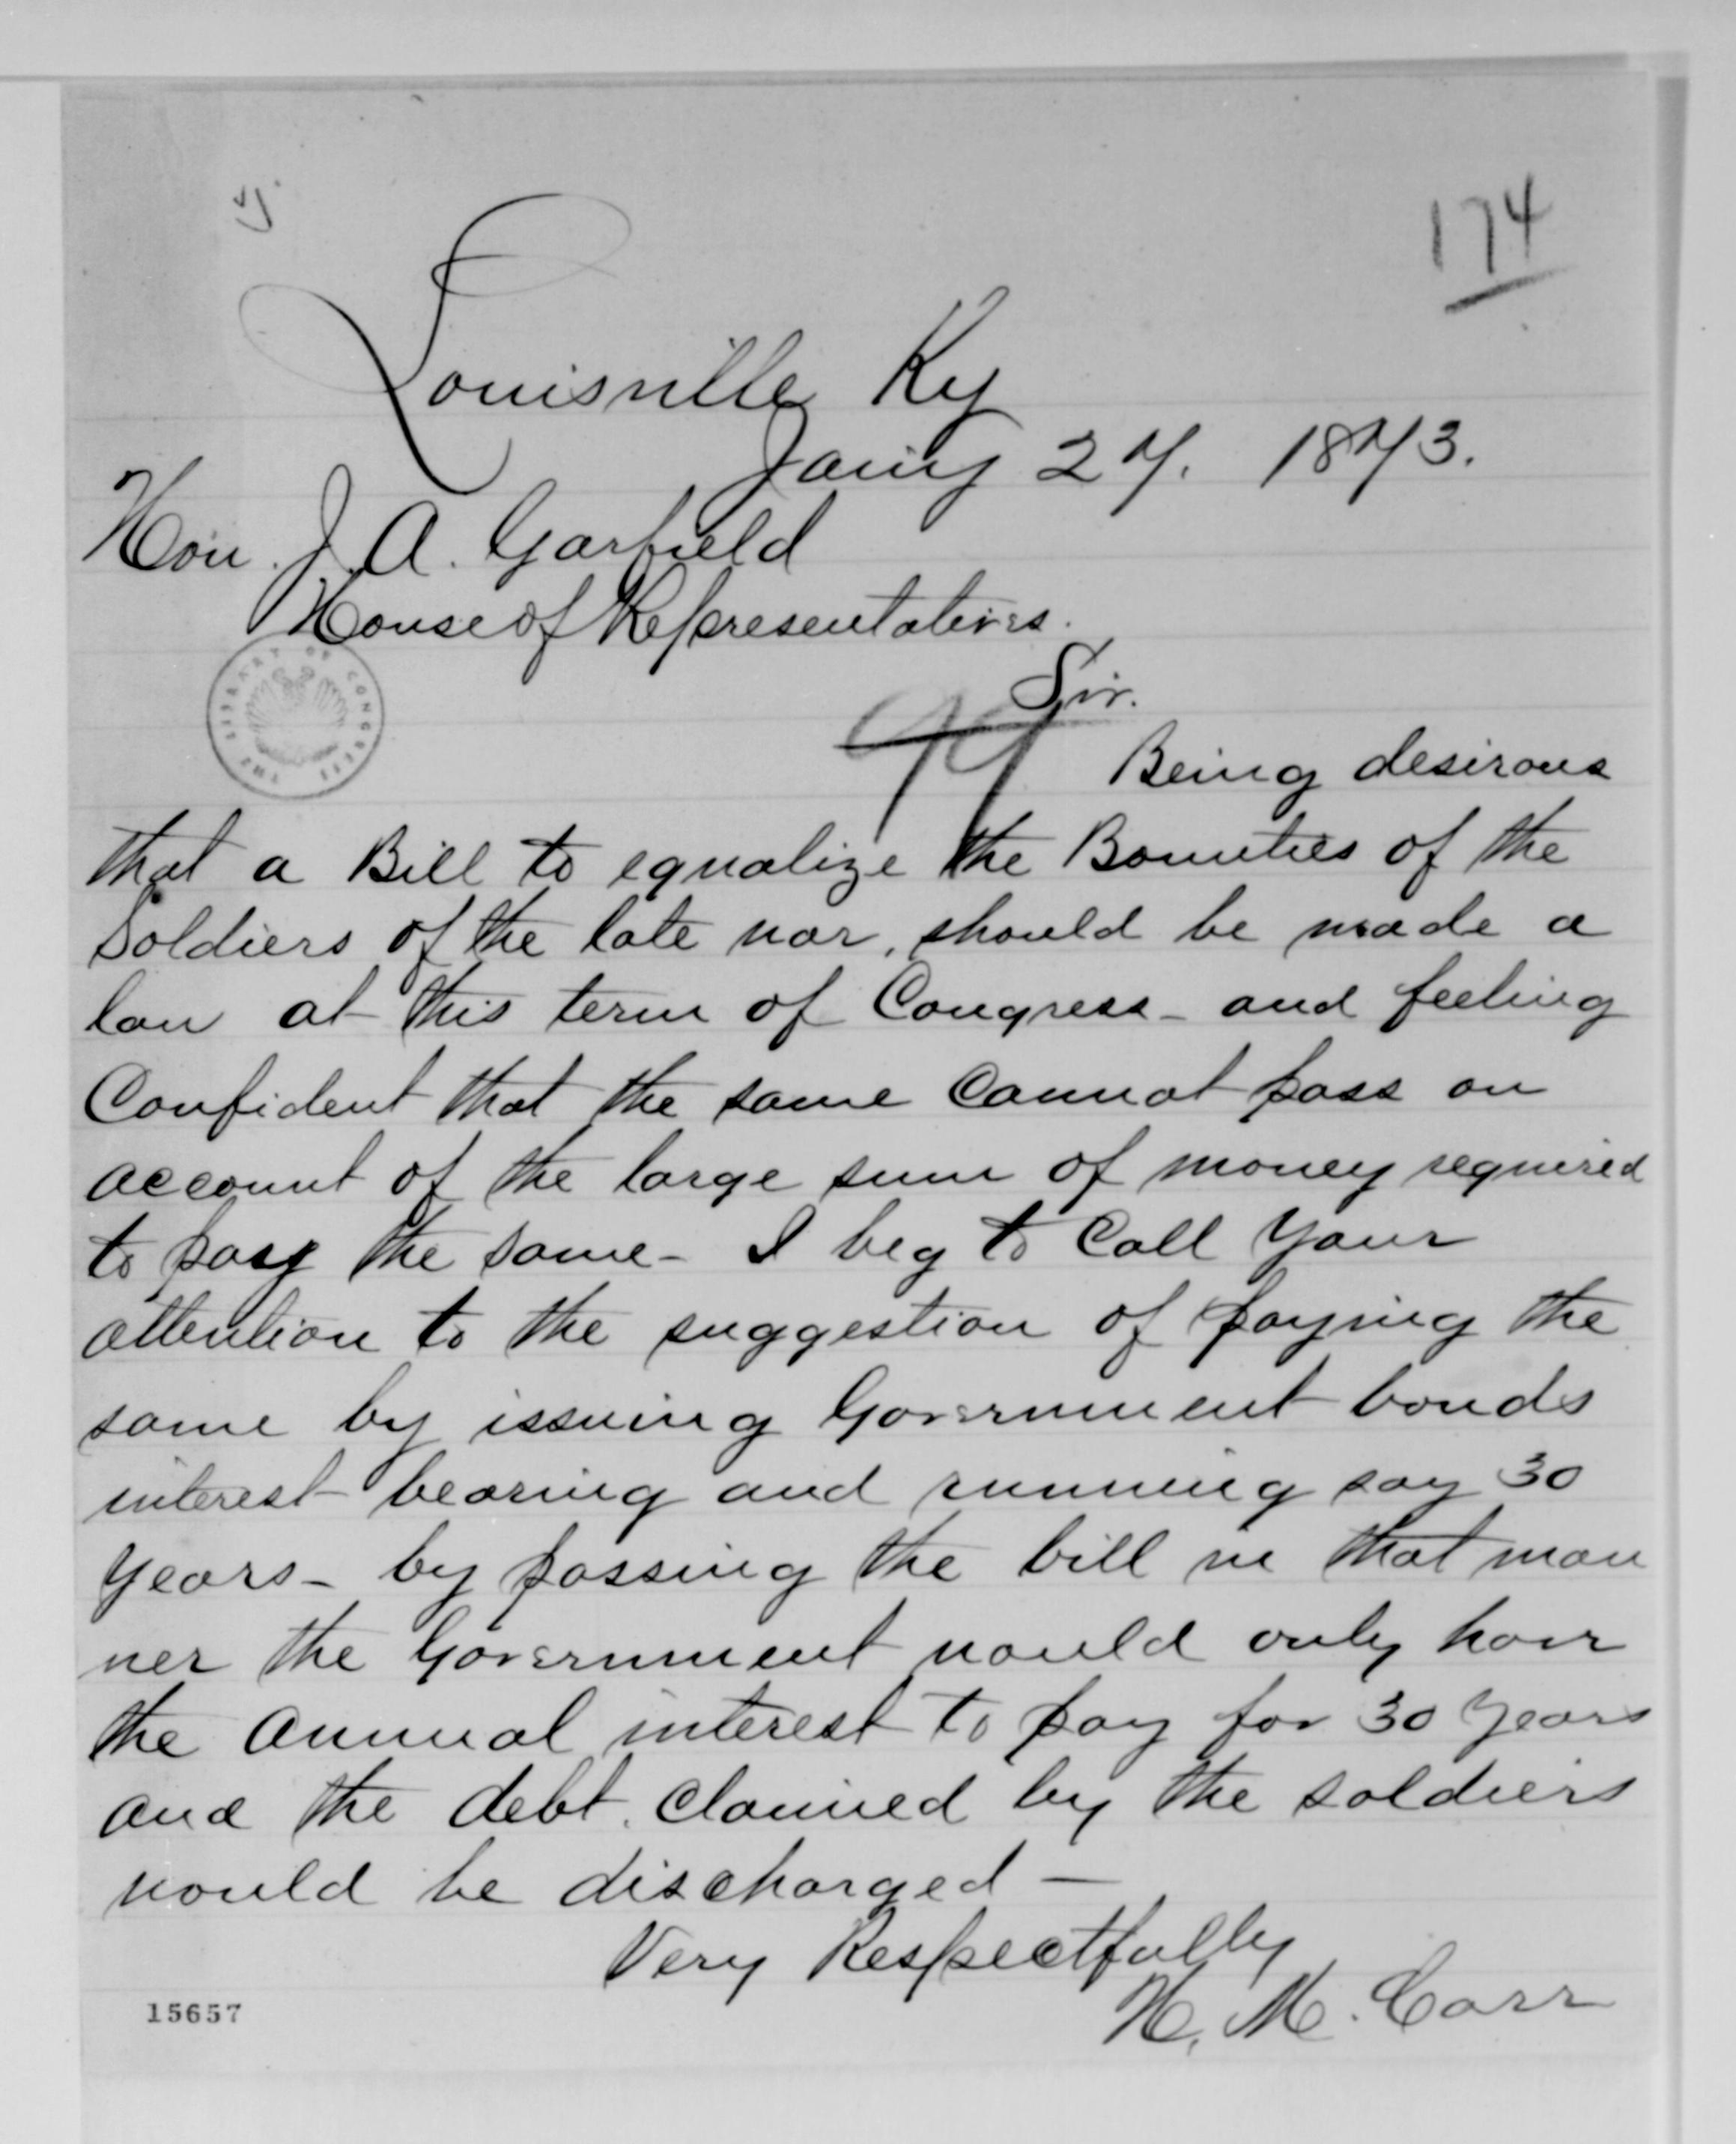 174
Louisville Ky
Jany 27. 1873.
Hon. J. A. Garfield
House of Representatives.
THE LIBRARY OF CONGRESS
Sir.
Being desirous
that a Bill to equalize the Bounties of the
Soldiers of the late war, should be made a
law at this term of Congress - and feeling
Confident that the same Cannot pass on
account of the large sum of money required
to pay the same - I beg to Call Your
attention to the suggestion of paying the
same by issuing Government bonds
interest bearing and running say 30
years - by passing the bill in that man
ner the Government would only have
the annual interest to pay for 30 Years
and the debt claimed by the soldiers
would be discharged -
Very Respectfully
H. M. Carr
15657